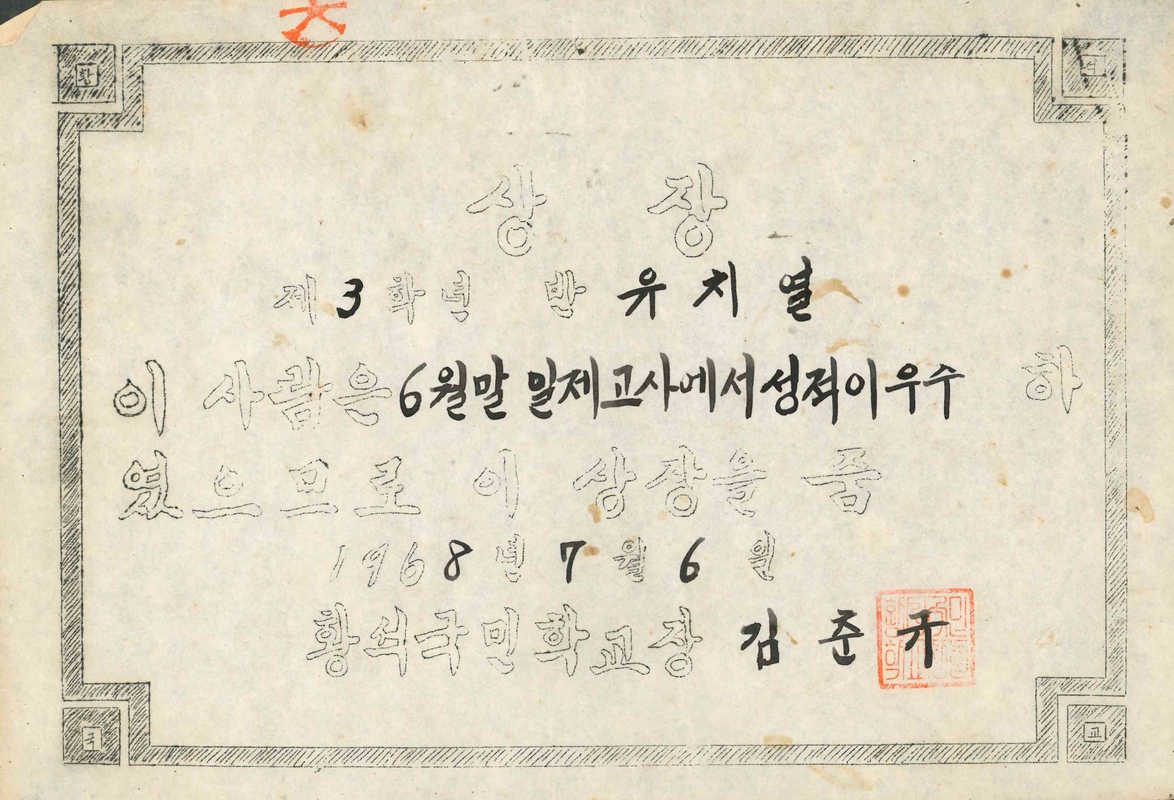 황 석
상 장
제 3 학년 반 유 치 열
이 사람은 6월말 일제고사에서 성적이 우수 하
였으므로 이 상장을 줌
1968년 7월 6일
황석국민학교장 김 준 규
국 교